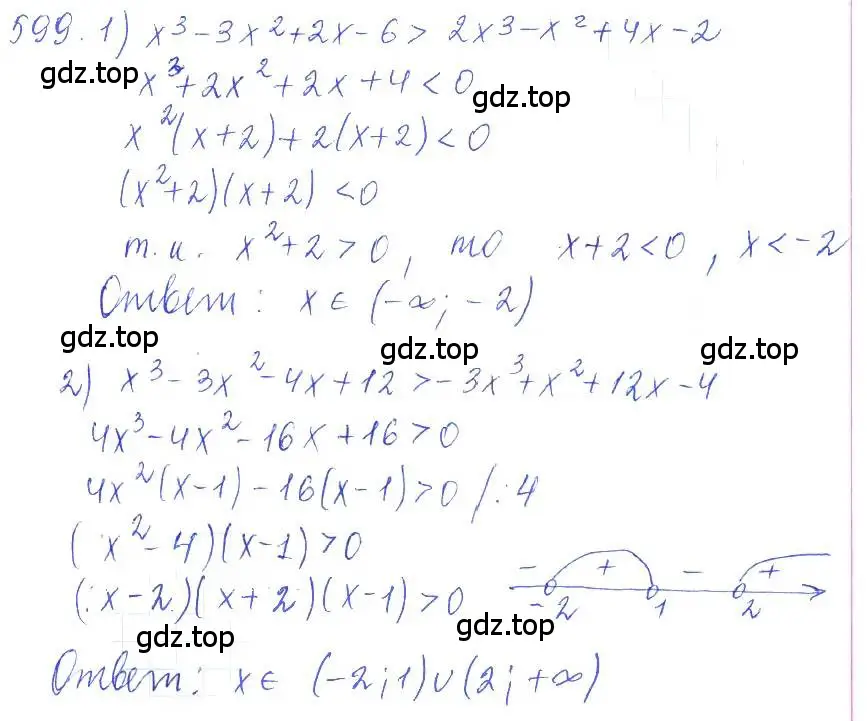 599. 1) x³ - 3x² + 2x - 6 > 2x³ - x² + 4x - 2
gdz.top
x³ + 2x² + 2x + 4 < 0
gdz.top
x²(x + 2) + 2(x + 2) < 0
(x² + 2)(x + 2) < 0
т.и. x² + 2 > 0, то x + 2 < 0, x < -2
Ответ: x ∈ (-∞; -2)
gdz.top gdz.top gdz.top
2) x³ - 3x² - 4x + 12 > -3x³ + x² + 12x - 4
4x³ - 4x² - 16x + 16 > 0
4x²(x - 1) - 16(x - 1) > 0 /: 4
(x² - 4)(x - 1) > 0
(x - 2)(x + 2)(x - 1) > 0
- + - +
-2 1 2
gdz.top gdz.top
Ответ: x ∈ (-2; 1) ∪ (2; +∞)